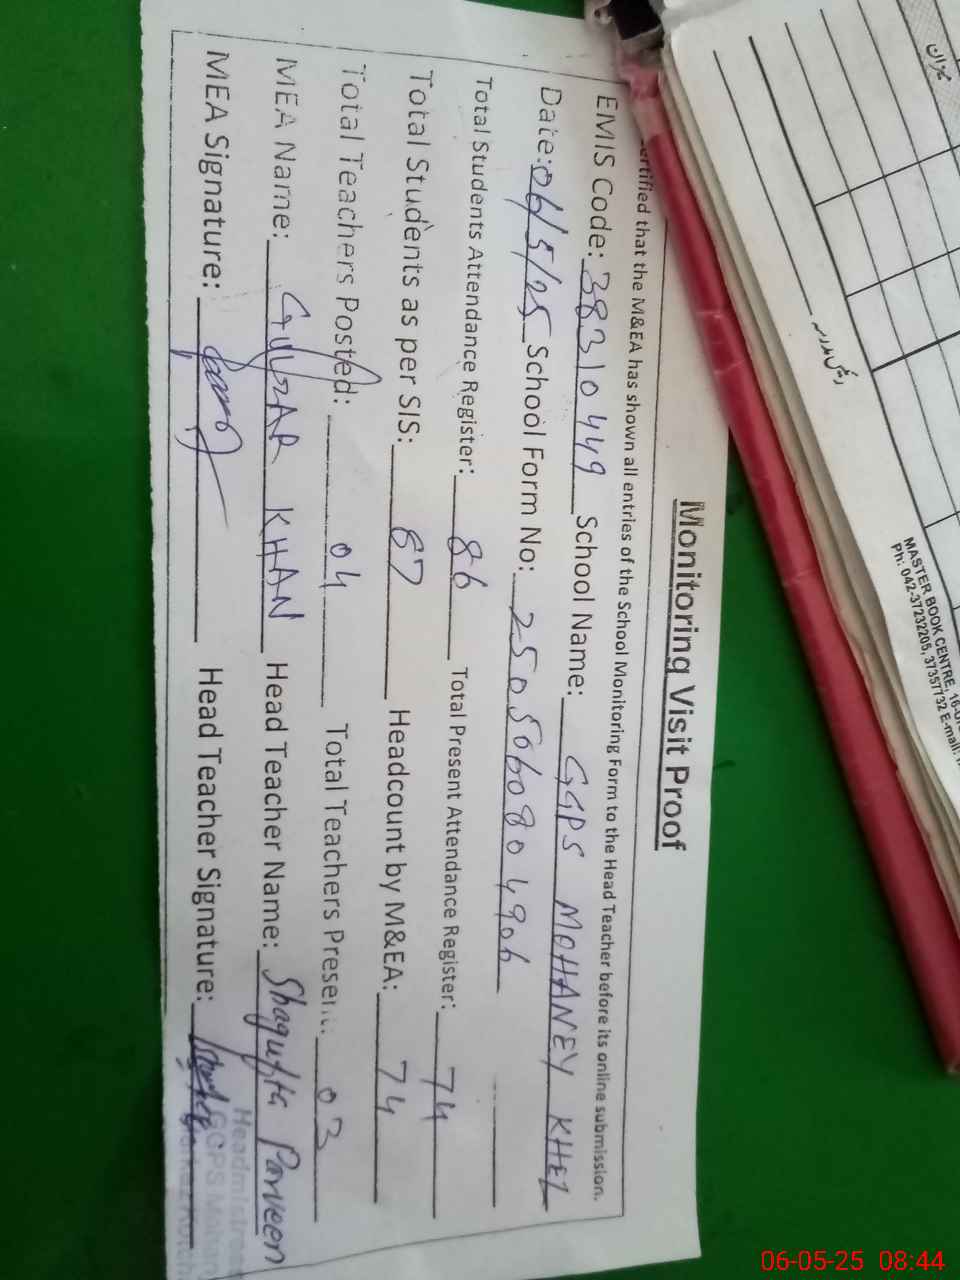 Monitoring Visit Proof
ertified that the M&EA has shown all entries of the School Monitoring Form to the Head Teacher before its online submission.
EMIS Code: 38310449 School Name: GGPS MOHANEY KHEL
Date: 06/5/25 School Form No: 2505060804906
Total Students Attendance Register: 86 Total Present Attendance Register: 74
Total Students as per SIS: 87 Headcount by M&EA: 74
Total Teachers Posted: 04 Total Teachers Present: 03
MEA Name: GULZAR KHAN Head Teacher Name: Shagufta Parveen
MEA Signature: Head Teacher Signature:
Headmistress
GGPS Mohan
MASTER BOOK CENTRE, 16-
Ph: 042-37232205, 37357732 E-mail:
06-05-25 08:44